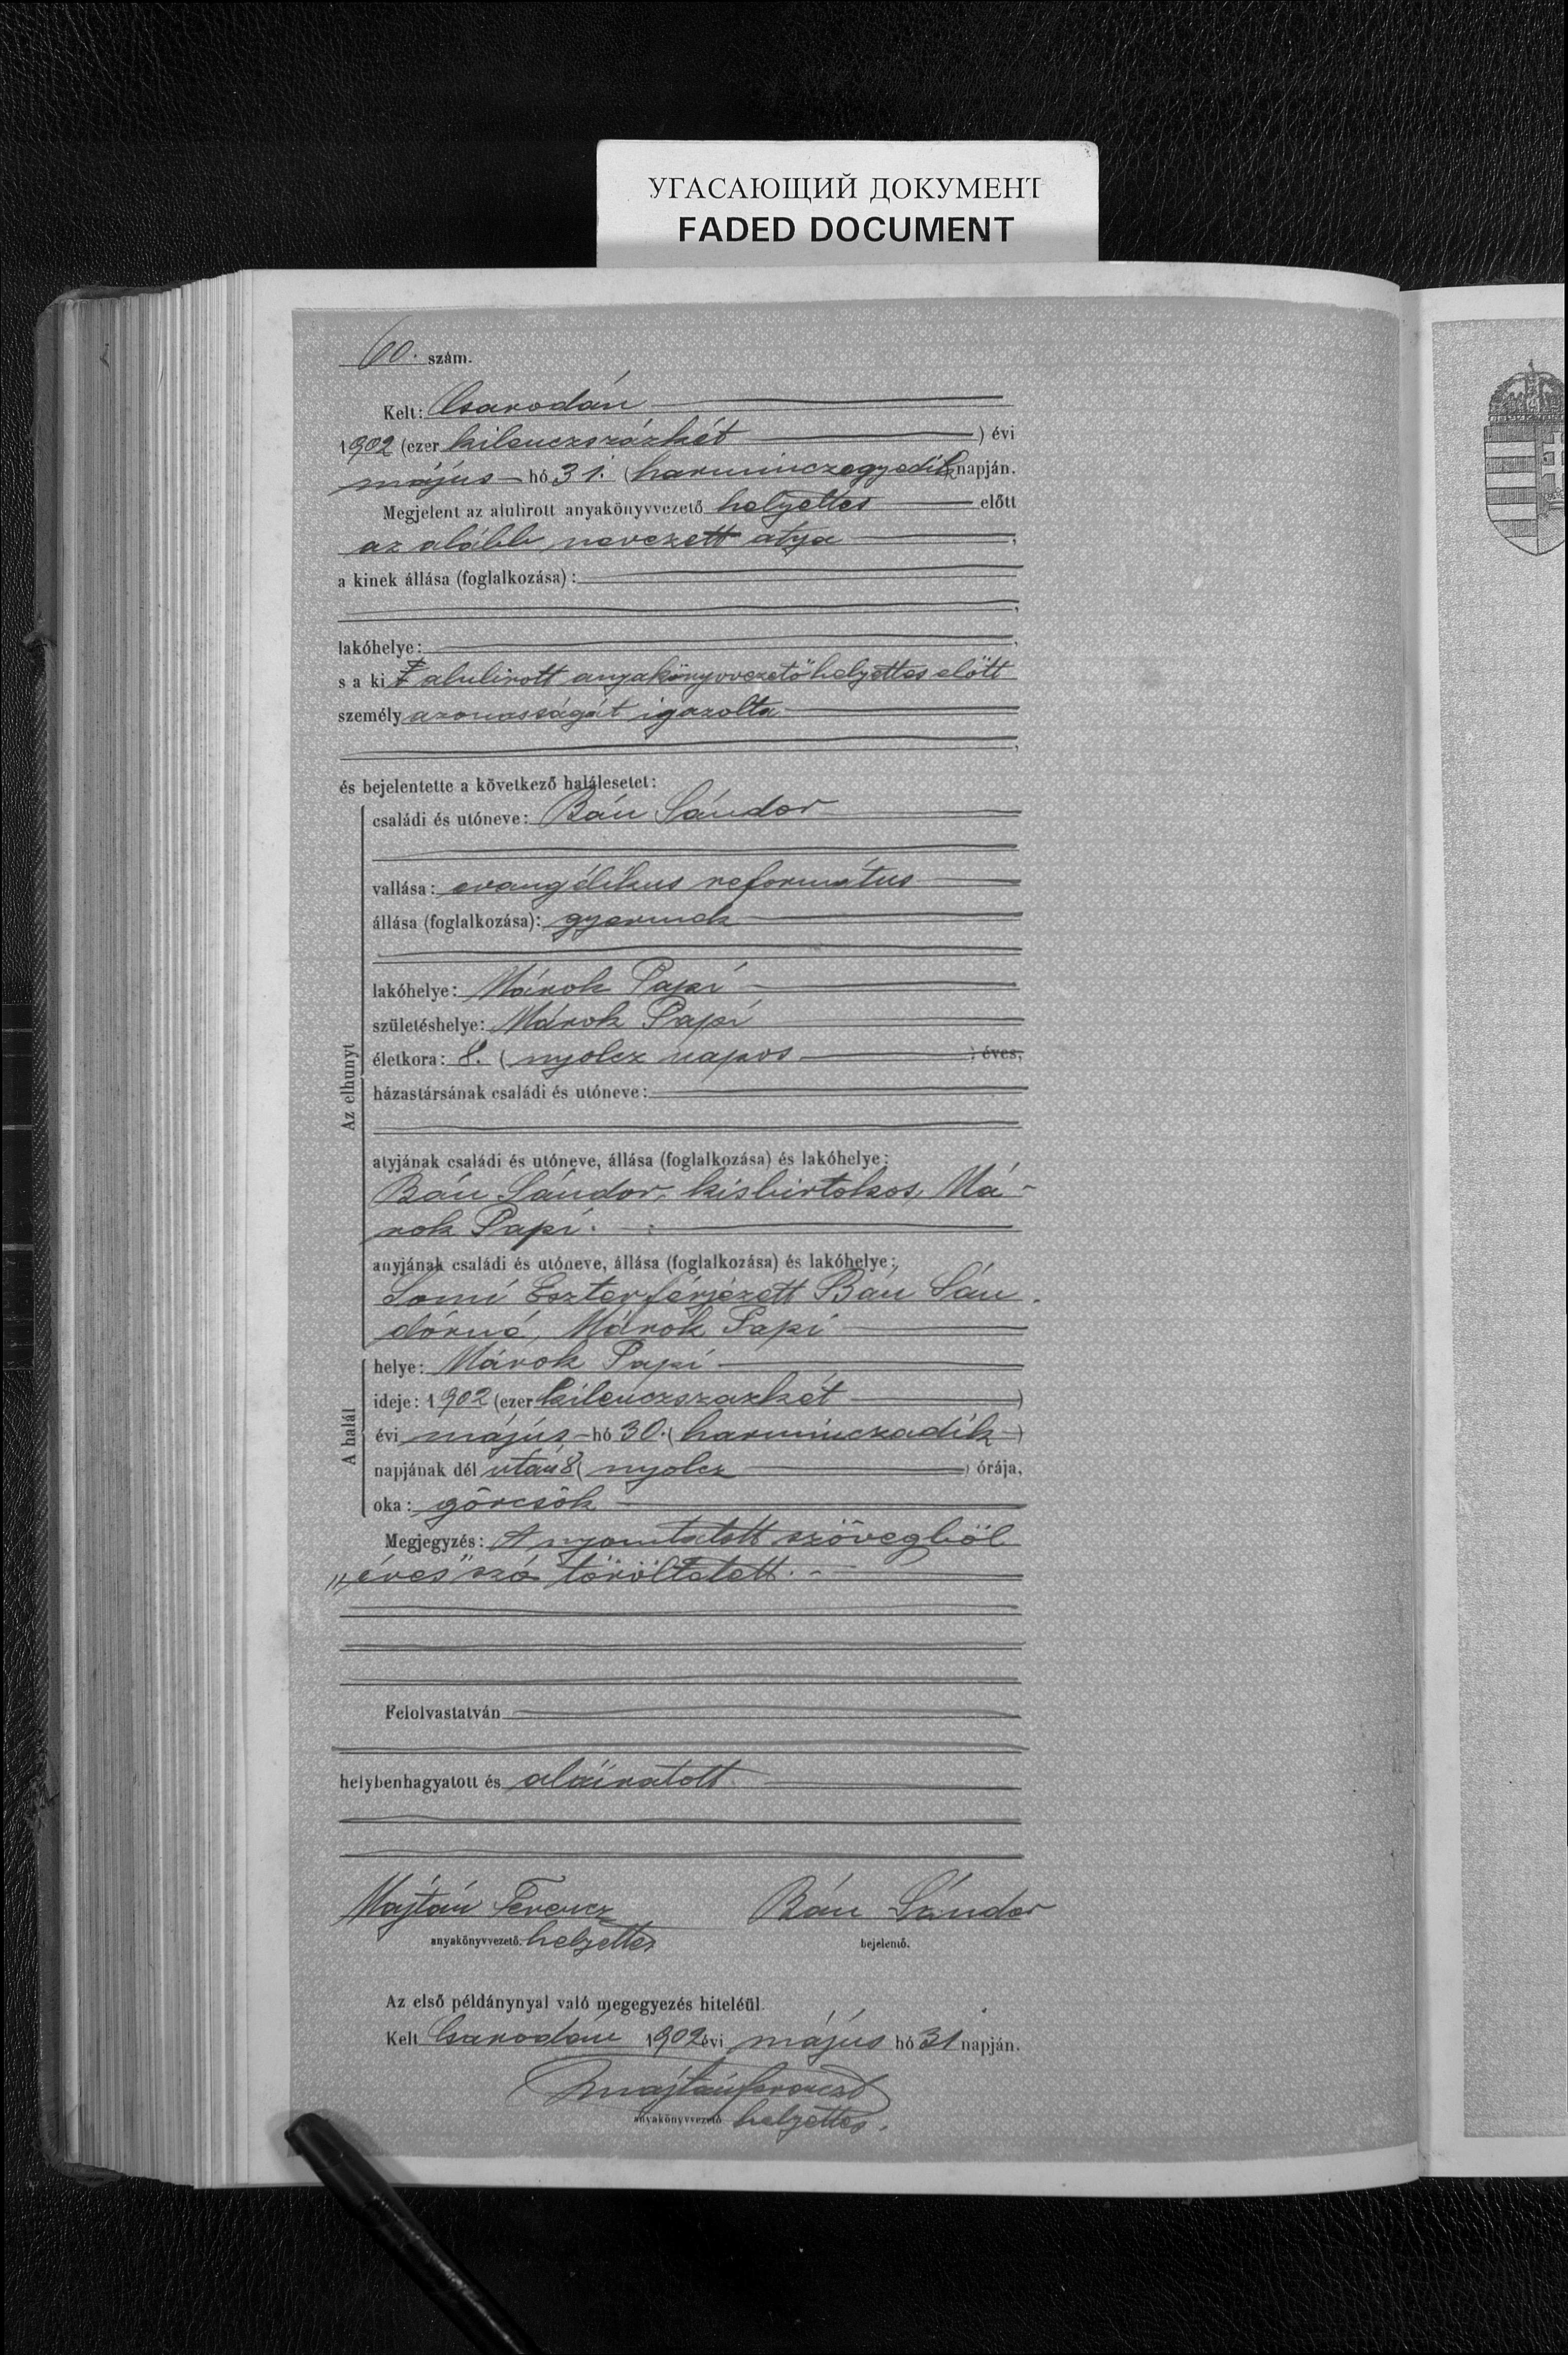 УГАСАЮЩИЙ ДОКУМЕНТ
FADED DOCUMENT
60. szám.
Kelt: Csarodán
1902 (ezer kilenczszázkét) évi
május hó 31. (harminczegyedik napján.
Megjelent az alulirott anyakönyvvezető helyettes előtt
az alább nevezett atya,
a kinek állása (foglalkozása):
lakóhelye:
s a ki alulirott anyakönyvvezető helyettes előtt
személyazonosságát igazolta
és bejelentette a következő halálesetet:
Az elhunyt
családi és utóneve: Bán Sándor
vallása: evangélikus református
állása (foglalkozása): gyermek
lakóhelye: Márok Papi
születéshelye: Márok Papi
életkora: 8. (nyolcz napos) éves,
házastársának családi és utóneve:
atyjának családi és utóneve, állása (foglalkozása) és lakóhelye:
Bán Sándor, kisbirtokos, Má-
rok Papi.
anyjának családi és utóneve, állása (foglalkozása) és lakóhelye:
Somi Eszter férjezett Bán Sán-
dorné, Márok Papi
A halál
helye: Márok Papi
ideje: 1902 (ezer kilenczszazkét)
évi május hó 30. (harminczadik)
napjának dél után 8 (nyolcz) órája,
oka: görcsök
Megjegyzés: A nyomtatott szövegből
„éves" szó töröltetett.
Felolvastatván
helybenhagyatott és aláiratott
Majtán Ferencz Bán Sándor
anyakönyvvezető. helyettes bejelentő.
Az első példánynyal való megegyezés hiteléül.
Kelt Csarodán 1902 évi május hó 31 napján.
Majtán Ferencz
anyakönyvvezető helyettes.